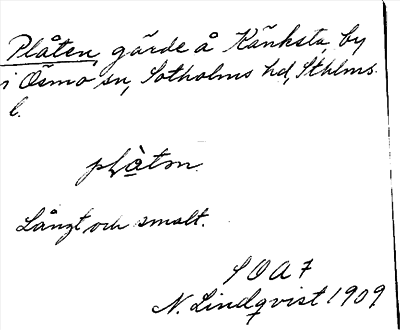 Plåten, gärde å Känksta, by
i Ösmo sn, Sotholms hd, Sthlms
l.
plåtən
Långt och smalt.
SOA 7
N. Lindqvist 1909